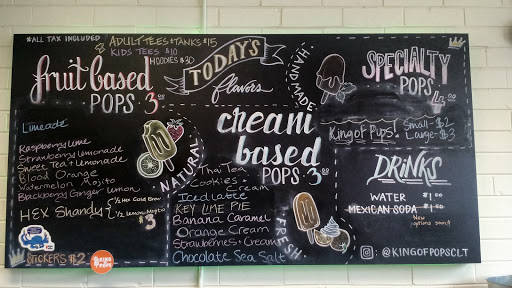 *ALL TAX INCLUDED
ADULT TEES & TANKS $15
KIDS TEES $10
HOODIES $30
fruit based
POPS 3.00
Limeade
Raspberry Lime
Strawberry Lemonade
Sweet Tea + Lemonade
Blood Orange
Watermelon Mojito
Blackberry Ginger Lemon
HEX Shandy { 1/2 Hex Cold Brew
1/2 Lemon
$3
STICKERS $2
KING of POPS
NATURAL
TODAY'S
flavors
HANDMADE
cream
based
POPS 3.00
Thai Tea
Cookies + Cream
Iced latte
KEY LIME PIE
Banana Caramel
Orange Cream
Strawberries + Cream
Chocolate Sea Salt
FRESH
SPECIALTY
POPS
4.00
King of Pups Small - $2
Large - $3
DRiNKS
WATER $1.00
MEXICAN SODA
New
options soon!
: @KINGOFPOPSCLT